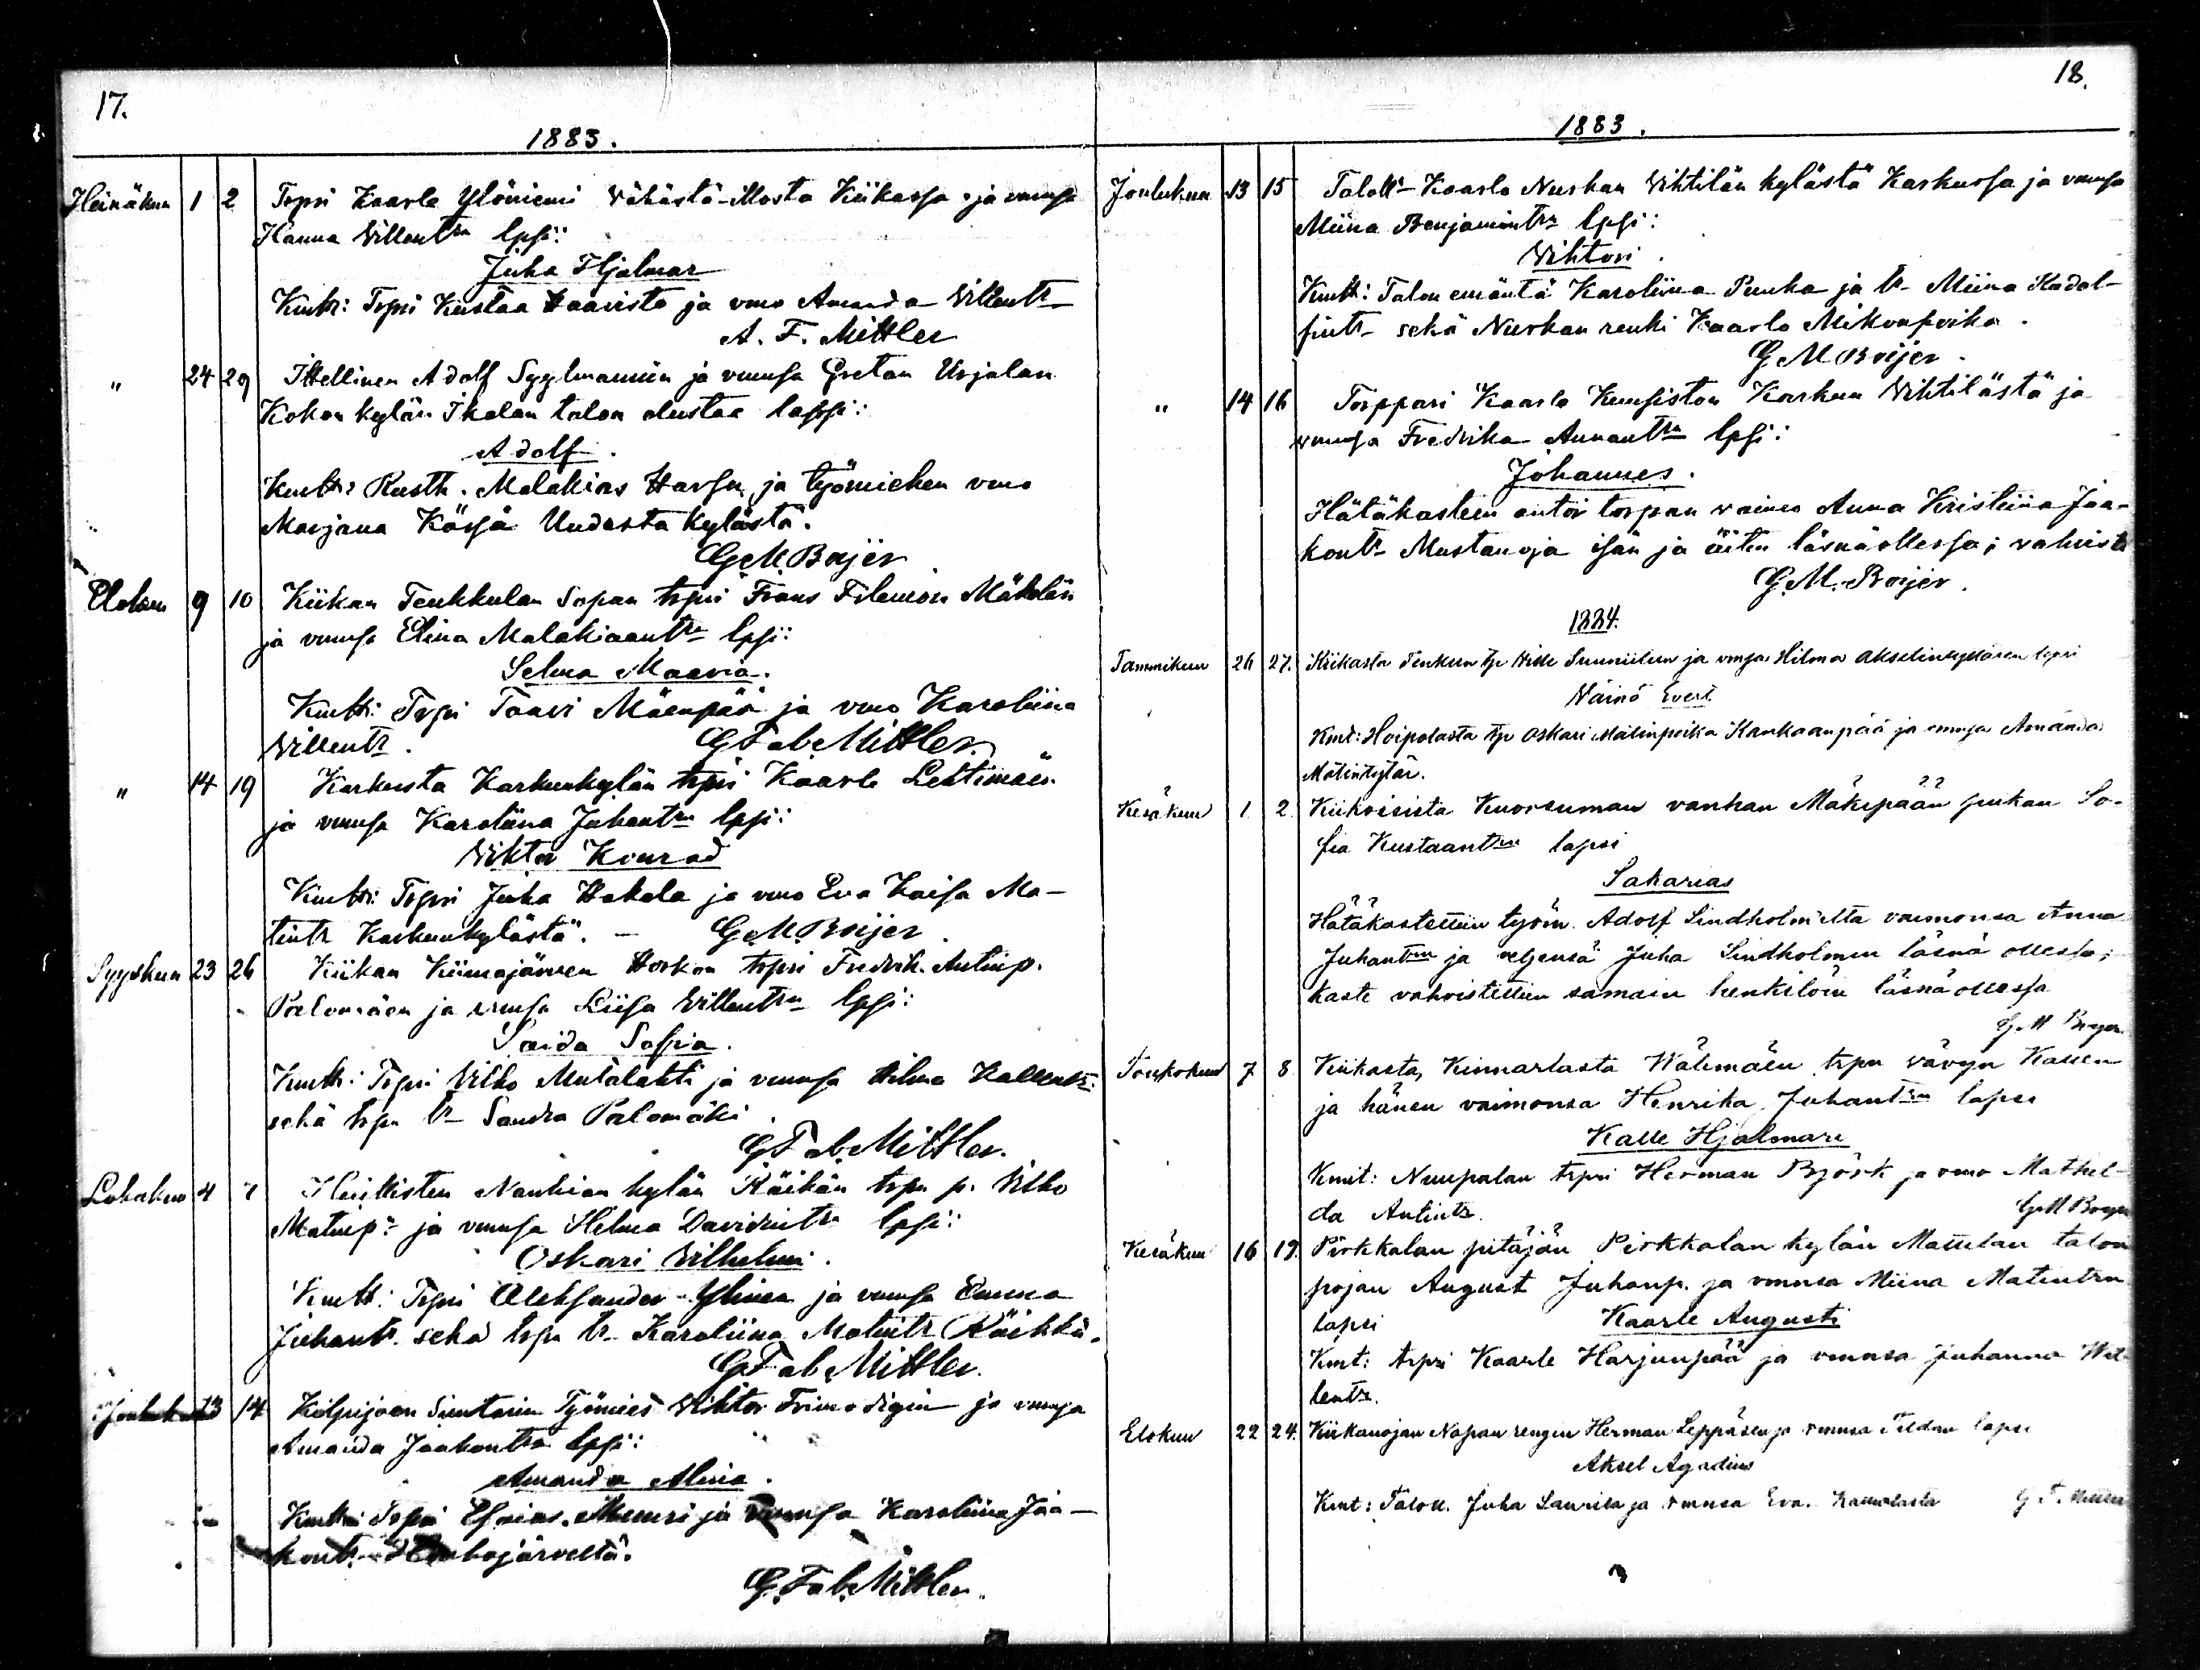 17.
1883.
Heinäkuu 1 2 Trpri Kaarle Ylöniemi Vähästä-Mosta Kiikassa ja vmsa
Hanna Villentrn lpsi:
Juha Hjalmar
Kmtt: Trpri Kustaa Haavisto ja vmo Amanda Villentr
A. F. Mittler
" 24 29 Ittellinen Adolf ja vmnsa Gretan Urjalan
Kokon kylän Ikolan talon alustaa lapsi:
Adolf.
Kmtt: Rusth. Malakias ja työmiehen vmo
Marjana Uudesta kylästä.
G M Boijer
Elokuu 9 10 Kiikan Teukkulan Sopan trpri Frans Filemon Mäkelän
ja vmnsa Elina Malakiaantr lpsi:
Selma Maaria.
Kmtt: Trpri Taavi Mäenpää ja vmo Karoliina
Villentr.
G Fab. Mittler.
" 14 19 Karkusta Karkunkylän trpri Kaarle Lehtimäen
ja vmnsa Karoliina Juhantrn lpsi:
Viktor Konrad
Kmtt: Trpri Juha Hakala ja vmo Eva Kaisa Ma-
tintr Karkunkylästä. - G M Boijer
Syyskuu 23 26 Kiikan Kiimajärven Horkon trpri Fredrik Antinp.
Palomäen ja vmnsa Liisa Villentrn lpsi:
Saida Sofia.
Kmtt: Trpri Vilho Mutalahti ja vmnsa Hilma Kallentr.
sekä trpn tr Sandra Palomäki
G Fab. Mittler.
Lokakuu 4 7 Huittisten Nanhian kylän Räikän trpn p. Vilho
Matinp. ja vmnsa Helma Davidintrn lpsi:
Oskari Vilhelmi.
Kmtt: Trpri Aleksander Ylinen ja vmnsa Emma
Juhantr. sekä trpn tr Karoliina Matintr Räikkä.
G Fab. Mittler.
Jouluku 13 14 Kilpijoen Työmies Viktor ja vmnsa
Amanda Jaakontrn lpsi:
Amanda Alina.
Kmtt: Trpri Esaias ja vmnsa Karoliina Jaa-
kontr
G. Fab. Mittler.
18.
1883.
Joulukuu 13 15 Taloll. Kaarlo Nuskan Vihtilän kylästä Karkussa ja vmnsa
Miina Benjamintrn lpsi:
Vihtori.
Kmtt: Talon emäntä Karoliina Punka ja tr. Miina Kadol-
fintr. sekä Nuskan renki Kaarlo Mikonpoika.
G M Boijer.
" 14 16 Torppari Kaarlo Kuusiston Karkun Vihtilästä ja
vmnsa Fredrika Annantrn lpsi:
Johannes.
Hätäkasteen antoi torpan vaimo Anna Kristiina Jaa-
kontr. Mustanoja isän ja äitin läsnäollessa; vahvisti
G. M. Boijer.
1884.
Tammikuu 26 27. Kiikasta Tenkun trp Wille Sunniilun ja vmnsa Hilma Akselintyttären lapsi
Väinö Evert.
Kmt: Hoipolasta trp Oskari Matinpoika Kankaanpää ja vmnsa Amanda
Matintytär.
Kesäkuu 1. 2. Kiikoisista Kuorsuman vanhan Mäkipään piikan So-
fia Kustaantrn lapsi
Sakarias
Hätäkastettiin työm. Adolf Lindholm'ilta vaimonsa Anna
Juhantrn ja veljensä Juha Lindholmin läsnä ollessa;
kaste vahvistettiin samain henkilöin läsnäollessa
G M Boijer.
Toukokuu 7 8 Kiikasta, Kinnarlasta Wälimäen trpn vävyn Kallen
ja hänen vaimonsa Henrika Juhantrn lapsi
Kalle Hjalmari
Kmt: Nuupalan trpri Herman Björk ja vmo Mathil-
da Antintr.
G M Boijer
Kesäkuu 16 19. Pirkkalan pitäjän Pirkkalan kylän Mattilan talon
pojan August Juhanp. ja vmnsa Miina Matintrn
lapsi Kaarle Augusti
Kmt: trpri Kaarle Harjunpää ja vmnsa Juhanna Wil-
lentr.
Elokuu 22 24. Kiikanojan Napan rengin Herman Leppäsen ja vmnsa Tildan lapsi
Aksel Agadius
Kmt: Taloll. Juha Laurila ja vmnsa Eva. G. F. Mittler